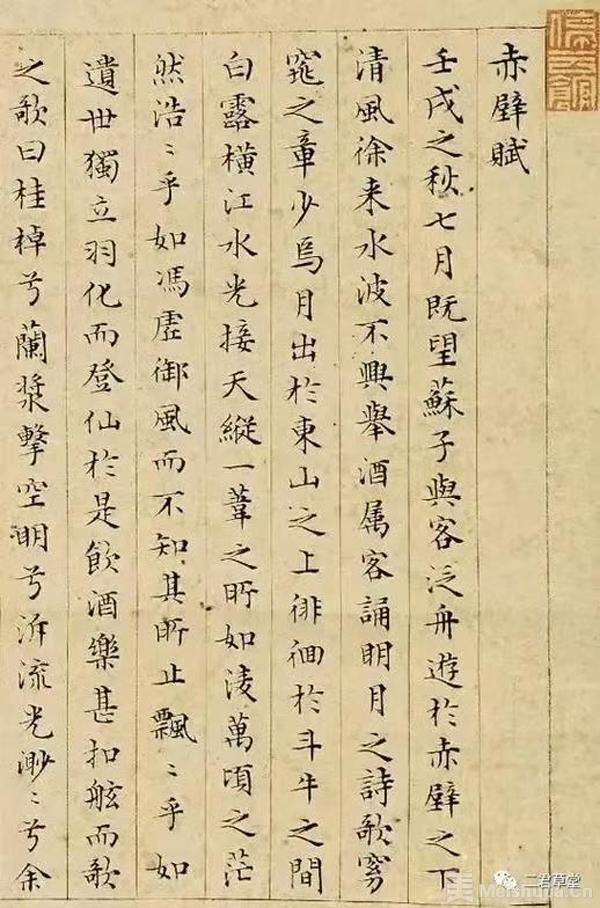 赤壁賦
壬戌之秋七月既望蘇子與客泛舟遊於赤壁之下
清風徐来水波不興舉酒属客誦明月之詩歌窈
窕之章少焉月出於東山之上徘徊於斗牛之間
白露横江水光接天縱一葦之所如淩萬頃之茫
然浩〻乎如馮虚御風而不知其所止飄〻乎如
遺世獨立羽化而登仙於是飲酒樂甚扣舷而歌
之歌曰桂棹兮蘭槳擊空明兮泝流光渺〻兮余
二君草堂
Meishuba.Cn